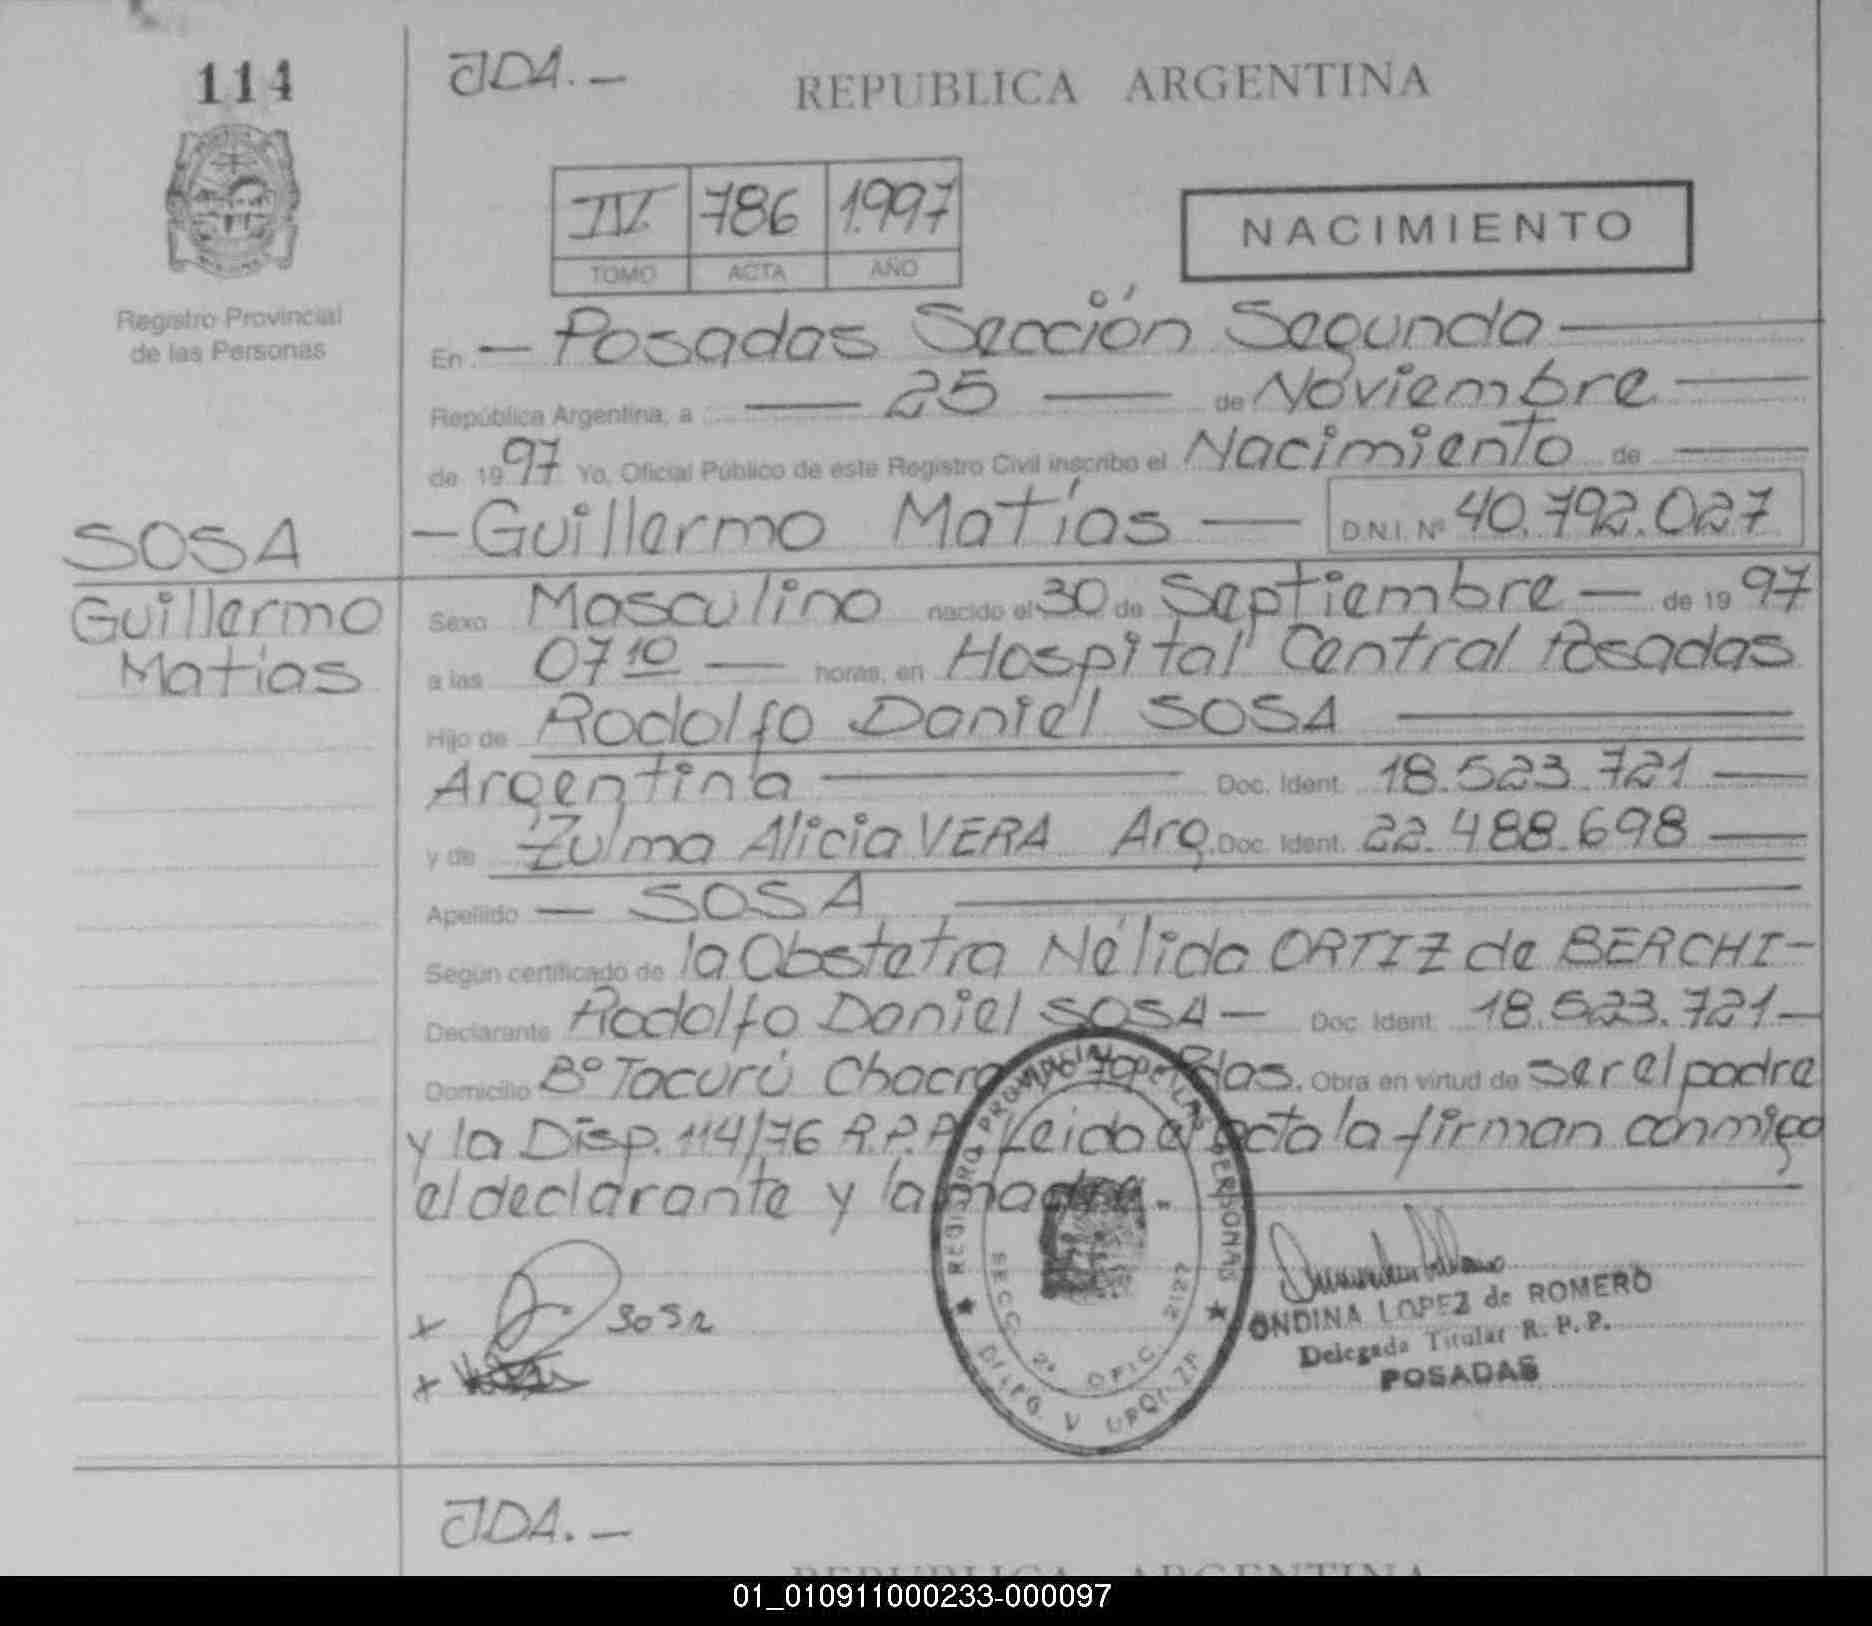 114
JDA.—
REPUBLICA ARGENTINA
IV. 786 1.997
TOMO ACTA AÑO
NACIMIENTO
Registro Provincial
de las Personas
En — Posadas Sección Segunda —
República Argentina, a — 25 — de Noviembre —
de 1997 Yo, Oficial Público de este Registro Civil inscribo el Nacimiento de —
SOSA
— Guillermo Matías — D.N.I. Nº 40.792.027
Guillermo
Matías
Sexo Masculino nacido el 30 de Septiembre — de 1997
a las 07 10 — horas, en Hospital Central Posadas
Hijo de Rodolfo Daniel SOSA —
Argentina — Doc. Ident. 18.523.721 —
y de Zulma Alicia VERA Arg. Doc. Ident. 22.488.698 —
Apellido — SOSA —
Según certificado de la Obstetra Nélida ORTIZ de BERCHI-
Declarante Rodolfo Daniel SOSA — Doc. Ident. 18.523.721 —
Domicilio Bº Tacurú Chacra Pdas. Obra en virtud de ser el padre
y la Disp. 114/76 R.P.P. Leido el acta la firman conmigo
el declarante y la madre. —
REGISTRO PROVINCIAL DE LAS PERSONAS
SECC. 2ª OFIC. 2127
x Sosa
x
ONDINA LOPEZ de ROMERO
Delegada Titular R. P. P.
POSADAS
JDA.—
REPUBLICA ARGENTINA
01_010911000233-000097